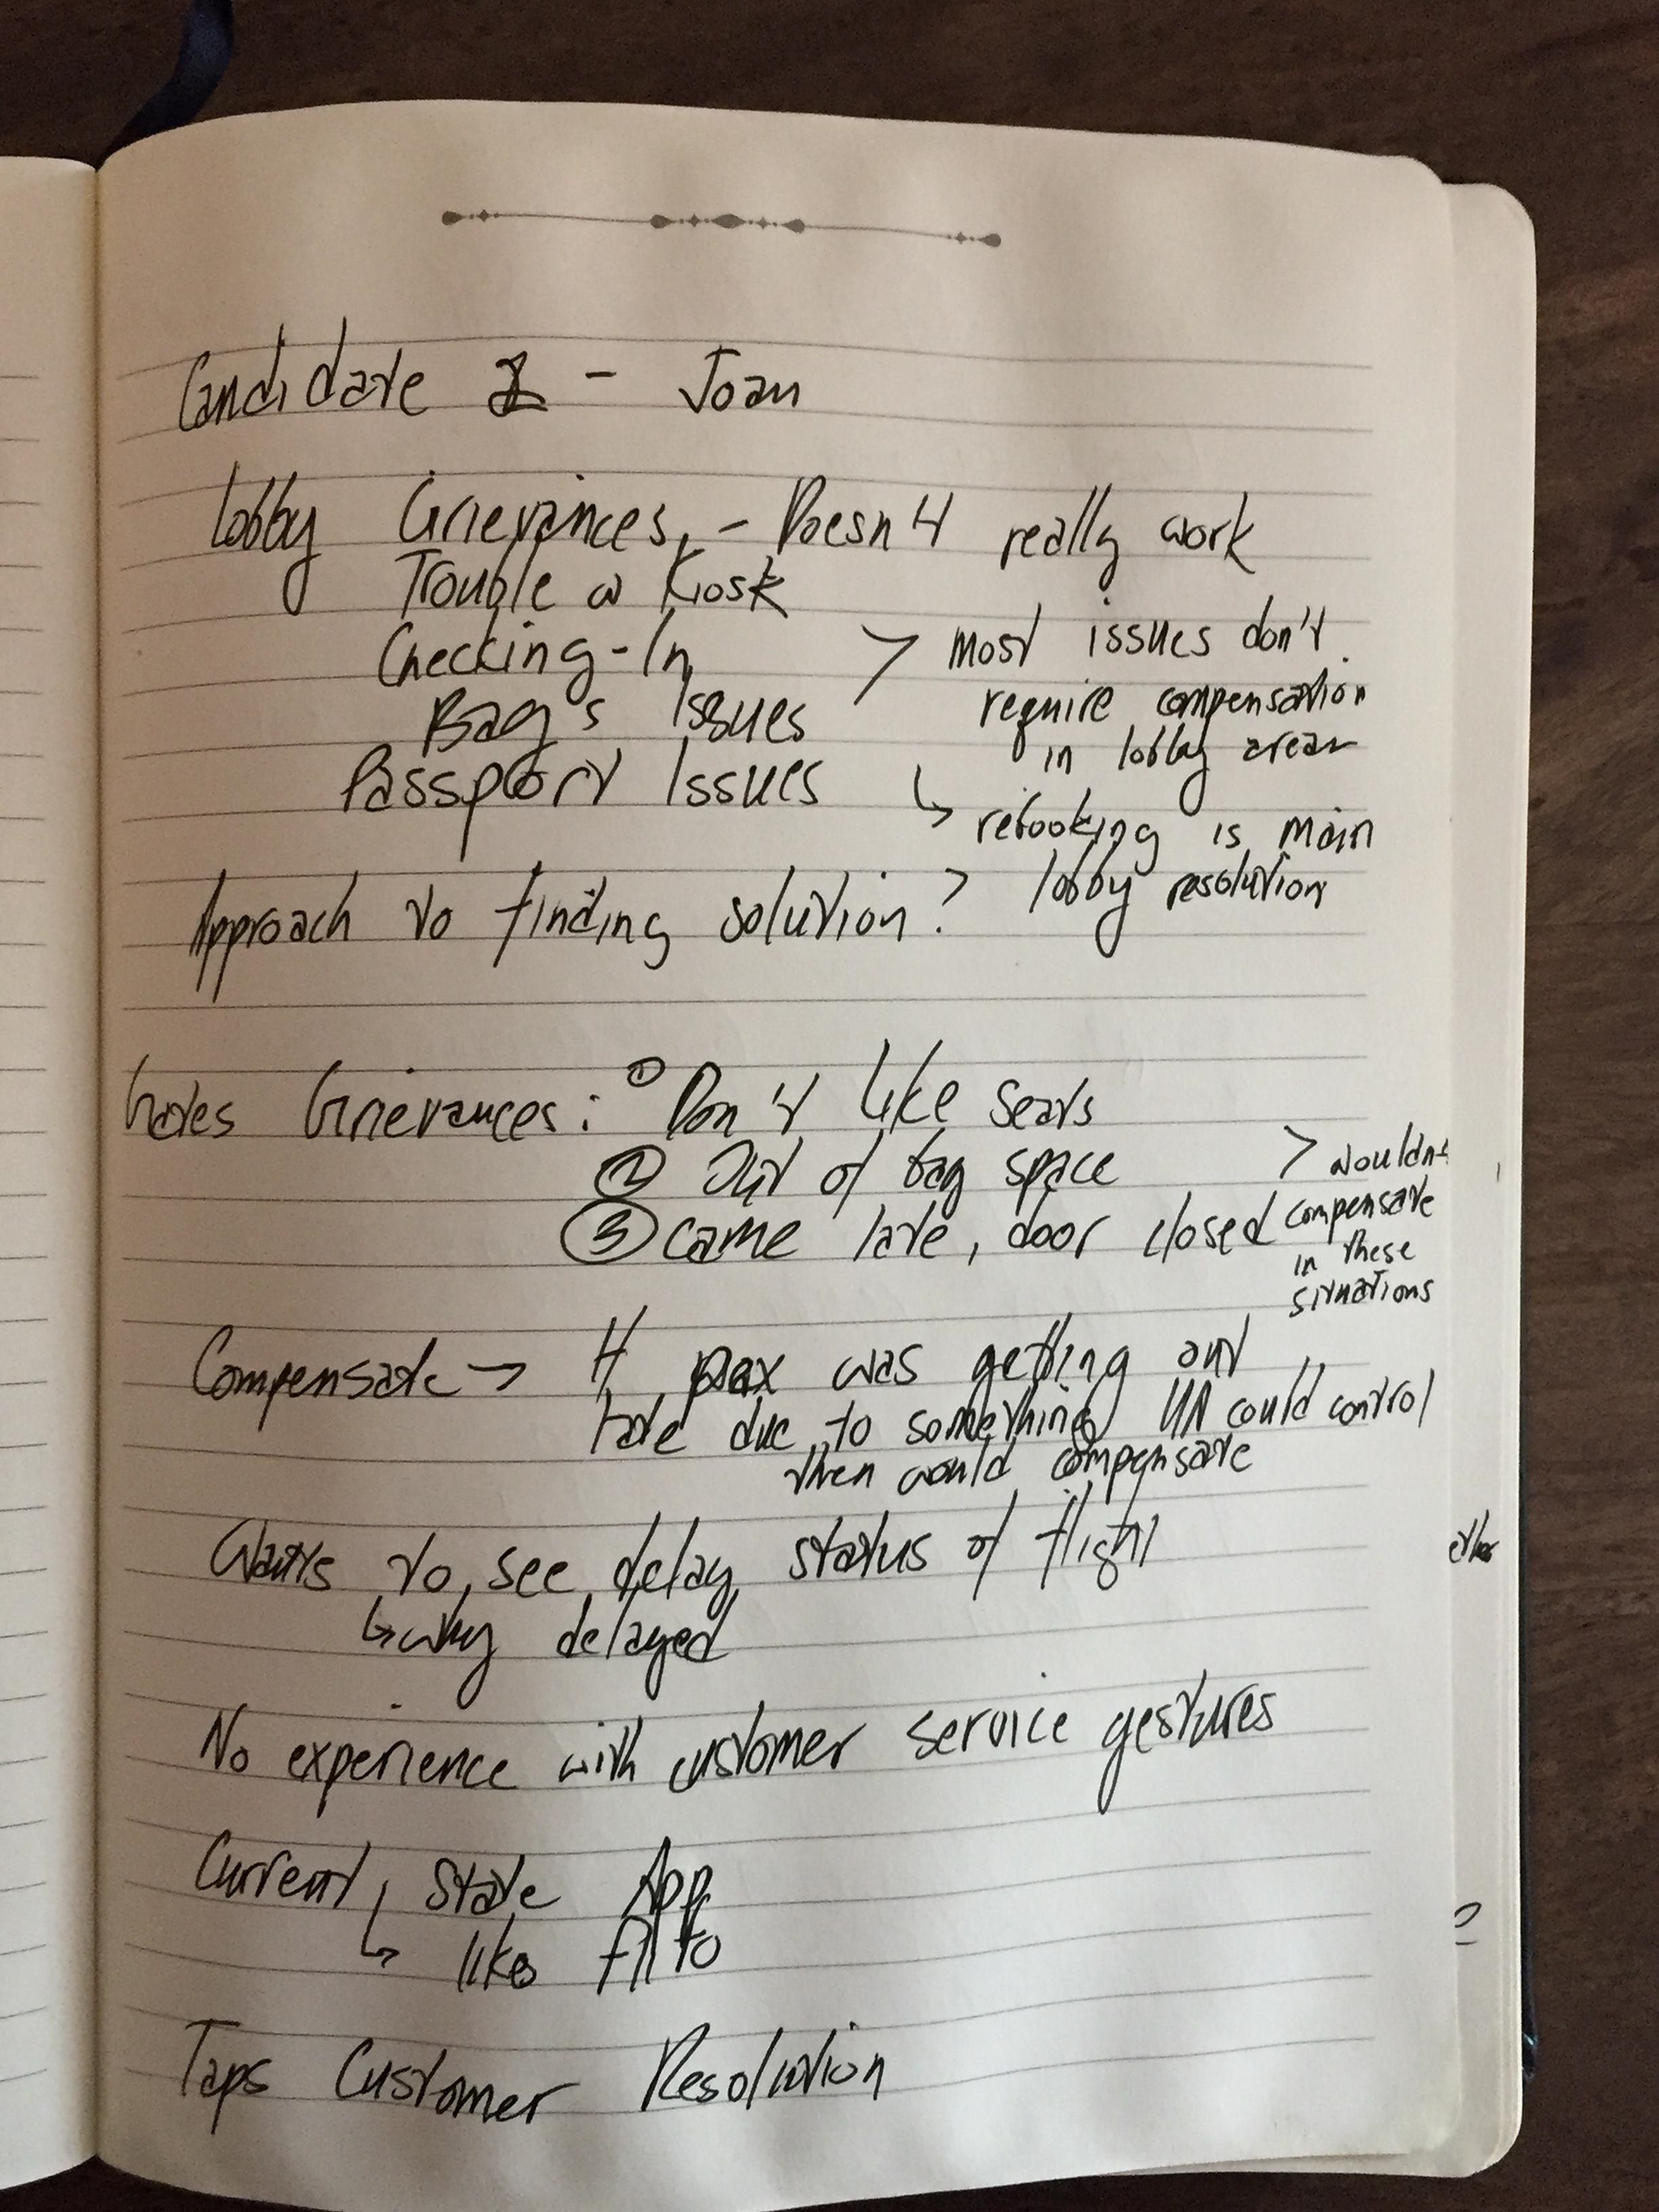 Candidate 2 - Joan
Lobby Grievances, - Doesn't really work
Trouble w Kiosk
Checking-In
> most issues don't
require compensation
in lobby area
Bag's Issues
Passport Issues
↳ rebooking is main
lobby resolution
Approach to finding solution?
Gates Grievances: ① Don't like seats
② Out of bag space
③ came late, door closed
> wouldn't
compensate
in these
situations
Compensate → If pax was getting out
late due to something UA could control
then would compensate
Wants to see delay status of flight
↳ why delayed
No experience with customer service gestures
Current State App
↳ likes
Taps Customer Resolution